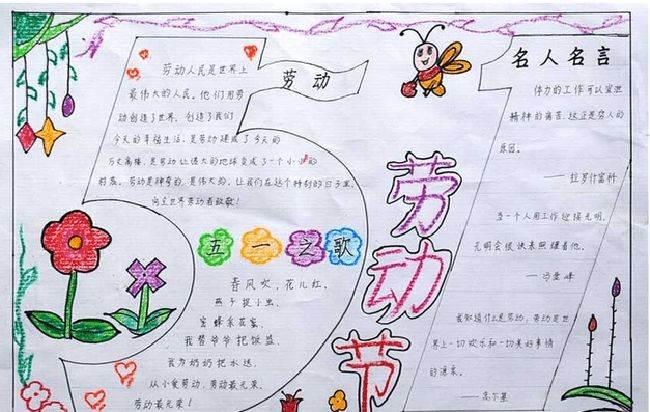 劳动
劳动人民是世界上
最伟大的人民。他们用劳
动创造了世界,创造了我们
今天的幸福生活。是劳动建成了今天的
万丈高楼,是劳动让偌大的地球变成了一个小小的
村落。劳动是神奇的,是伟大的,让我们在这个特别的日子里,
向全世界劳动者致敬!
五一之歌
春风吹,花儿红。
燕子捉小虫,
蜜蜂采花蜜,
我帮爷爷把饭盛,
我为奶奶把水送,
从小爱劳动,劳动最光荣,
劳动最光荣!
劳动节
名人名言
体力的工作可以宽泄
精神的痛苦,这正是穷人的
乐园。
——拉罗什富科
当一个人用工作迎接光明,
光明会很快来照耀着他。
——冯学峰
我知道什么是劳动,劳动是世
界上一切欢乐和一切美好事情
的源泉。
——高尔基